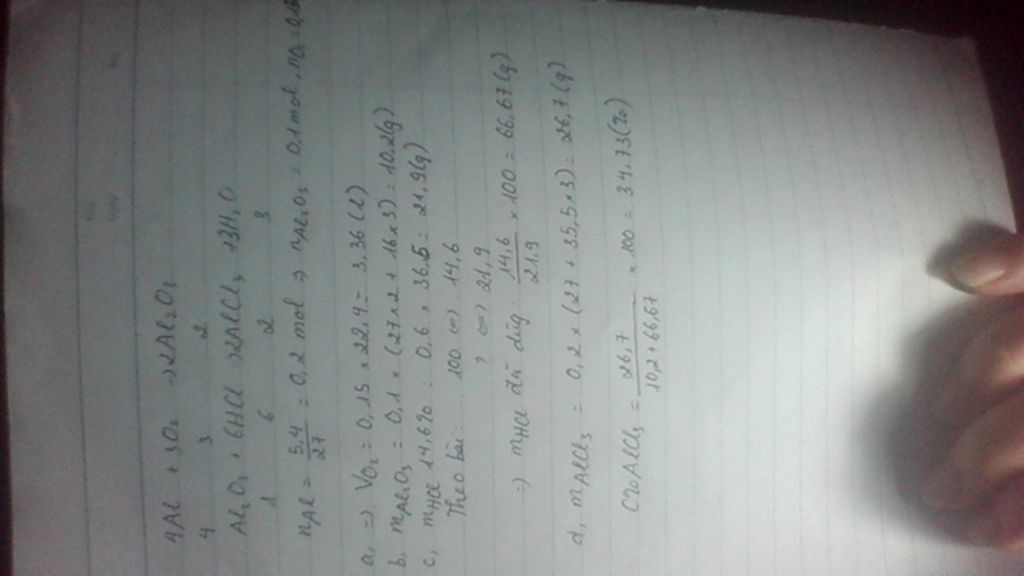 4Al + 3O₂ → 2Al₂O₃
4 3 2
Al₂O₃ + 6HCl → 2AlCl₃ + 3H₂O
1 6 2 3
nAl = 5,4/27 = 0,2 mol ⇒ nAl₂O₃ = 0,1 mol, nO₂ =
a, ⇒ VO₂ = 0,15 × 22,4 = 3,36 (l)
b, mAl₂O₃ = 0,1 × (27×2 + 16×3) = 10,2(g)
c, mHCl 14,6% : 0,6 × 36,5 = 21,9(g)
Theo bài: 100 (=) 14,6
? (=) 21,9
⇒ mHCl đã dùg : 14,6/21,9 × 100 = 66,67(g)
d, mAlCl₃ = 0,2 × (27 + 35,5×3) = 26,7(g)
C%AlCl₃ = 26,7/10,2+66,67 × 100 = 34,73(%)